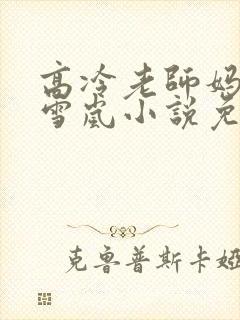 高冷老師媽
雪嵐小說免
克魯普斯卡婭